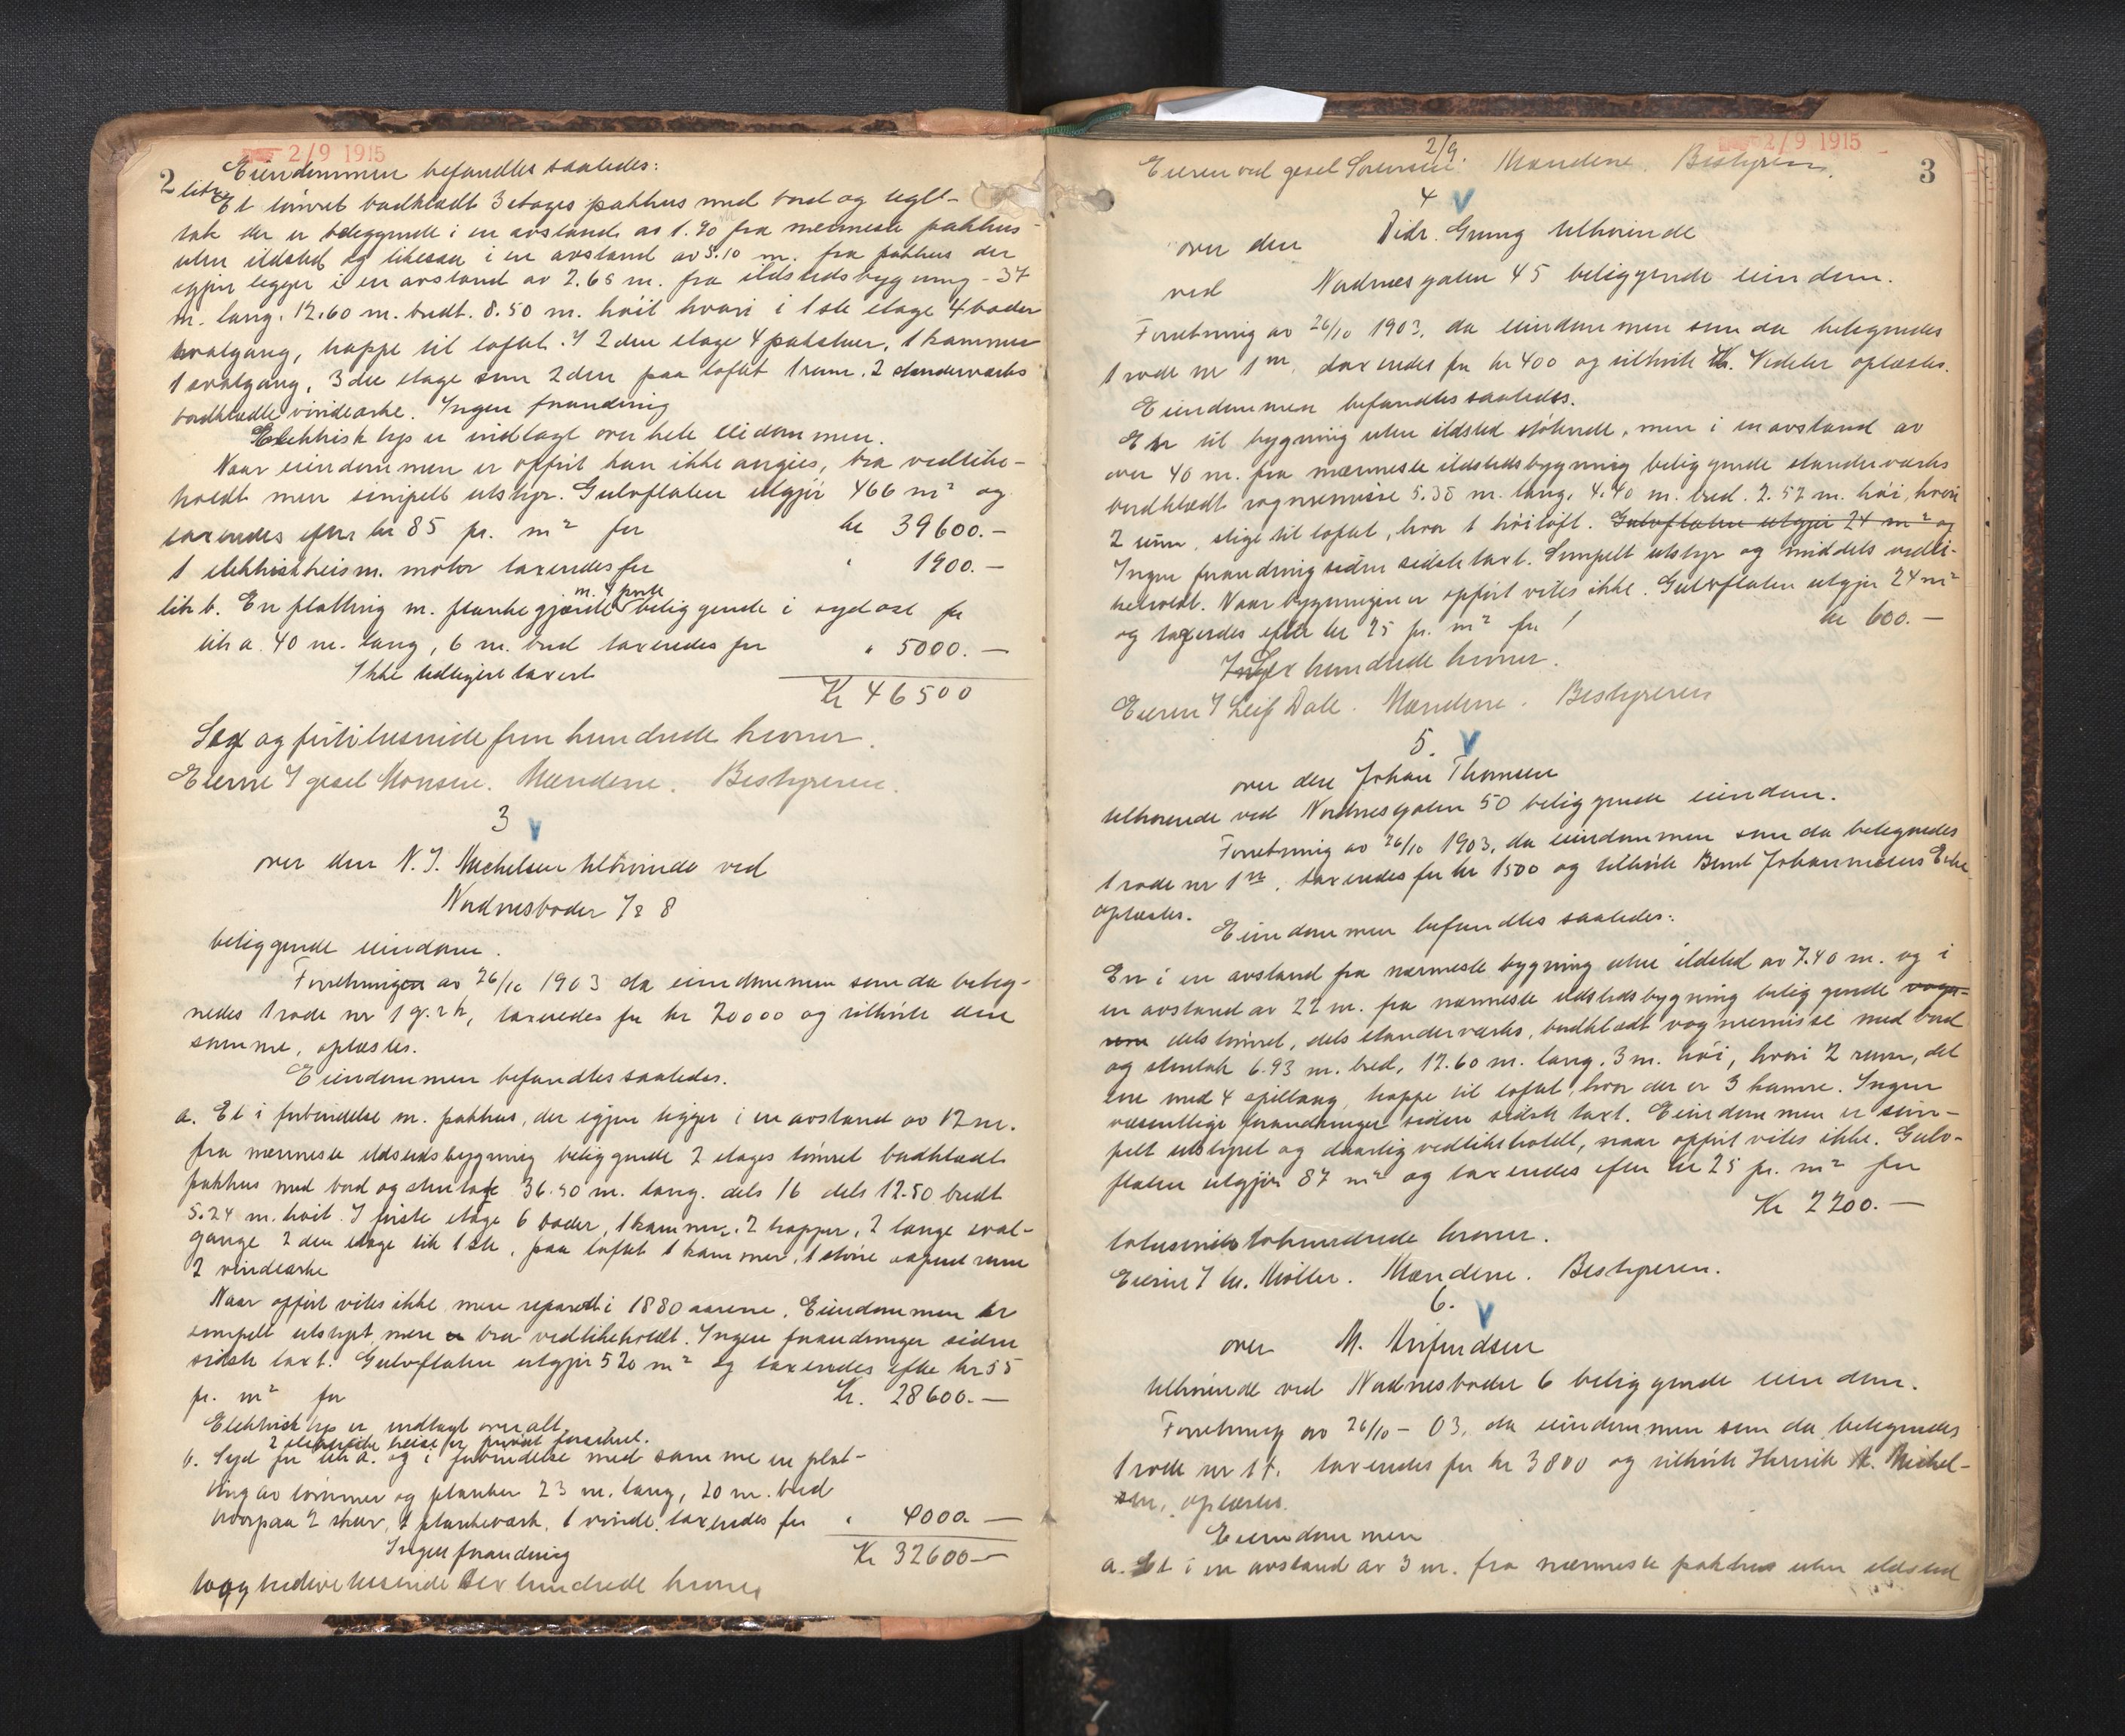 2/9 1915
2
Eiendommen befandtes saaledes:
litr a Et tømret bordklædt 3 etages pakhus med bord og tegl-
tak der er beliggende i en avstand av 1.90 fra nærmeste pakhus
uten ildsted og likesaa i en avstand av 5.10 m. fra pakhus der
igjen ligger i en avstand av 2.65 m. fra ildstedsbygning - 37
m. lang. 12.60 m. bredt. 8.50 m. høit hvori i 1ste etage 4 boder
svalgang, trappe til loftet. I 2den etage 4 pakstuer, 1 kammer
1 svalgang, 3die etage som 2den paa loftet 1 rum. 2 standerverks
bordklædte vindearke. Ingen forandring
Elektrisk lys er indlagt over hele eiendommen.
Naar eiendommen er opført kan ikke angies, bra vedlike-
holdt men simpelt utstyr. Gulvflaten utgjør 466 m² og
taxeredes efter kr 85 pr. m² for kr 39600.-
1 elektrisk heis m. motor taxeredes for " 1900.-
litr b. En platting m. plankegjærde m. 1 port beliggende i sydost for
litr a. 40 m. lang, 6 m. bred taxeredes for " 5000.-
Ikke tidligere taxert
Kr 46500
Sex og førti tusinde fem hundrede kroner.
Eierne I gesel Monsen. Mændene. Bestyreren.
3 V
over den N. J. Michelsen tilhørende ved
Nordnesboder 7 & 8
beliggende eiendom.
Forretningen av 26/10 1903 da eiendommen som da beteg-
nedes 1 rode nr 1 q. r h, taxeredes for kr 20000 og tilhørte den
samme, oplæstes.
Eiendommen befandtes saaledes.
a. Et i forbindelse m. pakhus, der igjen ligger i en avstand av 12 m.
fra nærmeste ildstedsbygning beliggende 2 etages tømret bordklædt
pakhus med bord og stentak 36.50 m. lang. dels 16 dels 12.50 bredt
5.24 m. høit. I første etage 6 boder, 1 kammer, 2 trapper, 2 lange sval-
gange 2den etage lik 1ste, paa loftet 1 kammer, 1 større aapent rum
2 vindearke
Naar opført vites ikke men reparert i 1880 aarene. Eiendommen er
simpelt utstyrt men bra vedlikeholdt. Ingen forandringer siden
sidste taxt. Gulvflaten utgjør 520 m² og taxeredes efter kr 55
pr. m² for Kr. 28600.-
Elektrisk lys er indlagt overalt.
2 elektriske heise er privat forsikret.
b. Syd for litr a. og i forbindelse med samme en plat-
ting av tømmer og planker 23 m. lang, 20 m. bred
hvorpaa 2 skur, 1 plankeverk, 1 vinde, taxeredes for " 4000 -
Ingen forandring Kr 32600 -
to og tredive tusinde sex hundrede kroner
2/9 1915
3
2/9.
Eieren ved gesel Sørensen. Mændene. Bestyreren.
4 V
over den Didr. Grung tilhørende
ved Nordnesgaten 45 beliggende eiendom.
Forretning av 26/10 1903, da eiendommen som da betegnedes
1 rode nr 1 m, taxeredes for kr 400 og tilhørte Th. Vedeler oplæstes.
Eiendommen befandtes saaledes.
En til bygning uten ildsted støtende, men i en avstand av
over 40 m. fra nærmeste ildstedsbygning beliggende standerverks
bordklædt vognremisse 5.35 m. lang, 4.40 m. bred. 2.52 m. høi, hvori
2 rum, stige til loftet, hvor 1 høiloft. Gulvflaten utgjør 24 m² og
Ingen forandring siden sidste taxt. Simpelt utstyr og middels vedli-
keholdt. Naar bygningen er opført vites ikke. Gulvflaten utgjør 24 m²
og taxeredes efter kr 25 pr. m² for kr 600.-
Sex hundrede kroner.
Eieren I Leif Dale. Mændene. Bestyreren
5. V
over den Johan Thomsen
tilhørende ved Nordnesgaten 50 beliggende eiendom.
Forretning av 26/10 1903, da eiendommen som da betegnedes
1 rode nr 1 n, taxeredes for kr 1500 og tilhørte Bernt Johannesens Enke
oplæstes.
Eiendommen befandtes saaledes:
En i en avstand fra nærmeste bygning uten ildsted av 7.40 m. og i
en avstand av 22 m. fra nærmeste ildstedsbygning beliggende vogn-
rem dels tømret, dels standerverks, bordklædt vognremisse med bord
og stentak 6.93 m. bred, 12.60 m. lang. 3 m. høi, hvori 2 rum, det
ene med 4 spiltaug, trappe til loftet, hvor der er 3 kamre. Ingen
væsentlige forandringer siden sidste taxt. Eiendommen er sim-
pelt utstyret og daarlig vedlikeholdt, naar opført vites ikke. Gulv-
flaten utgjør 87 m² og taxeredes efter kr 25 pr. m² for
Kr 2200.-
totusinde tohundrede kroner.
Eieren I hr. Møller. Mændene. Bestyreren.
6. V
over M. Arnfindsen
tilhørende ved Nordnesboder 6 beliggende eiendom.
Forretning av 26/10 - 03, da eiendommen som da betegnedes
1 rode nr 1 t. taxeredes for kr 3800 og tilhørte Henrik A. Michel-
sen, oplæstes.
Eiendommen
a. Et i en avstand av 3 m. fra nærmeste pakhus uten ildsted